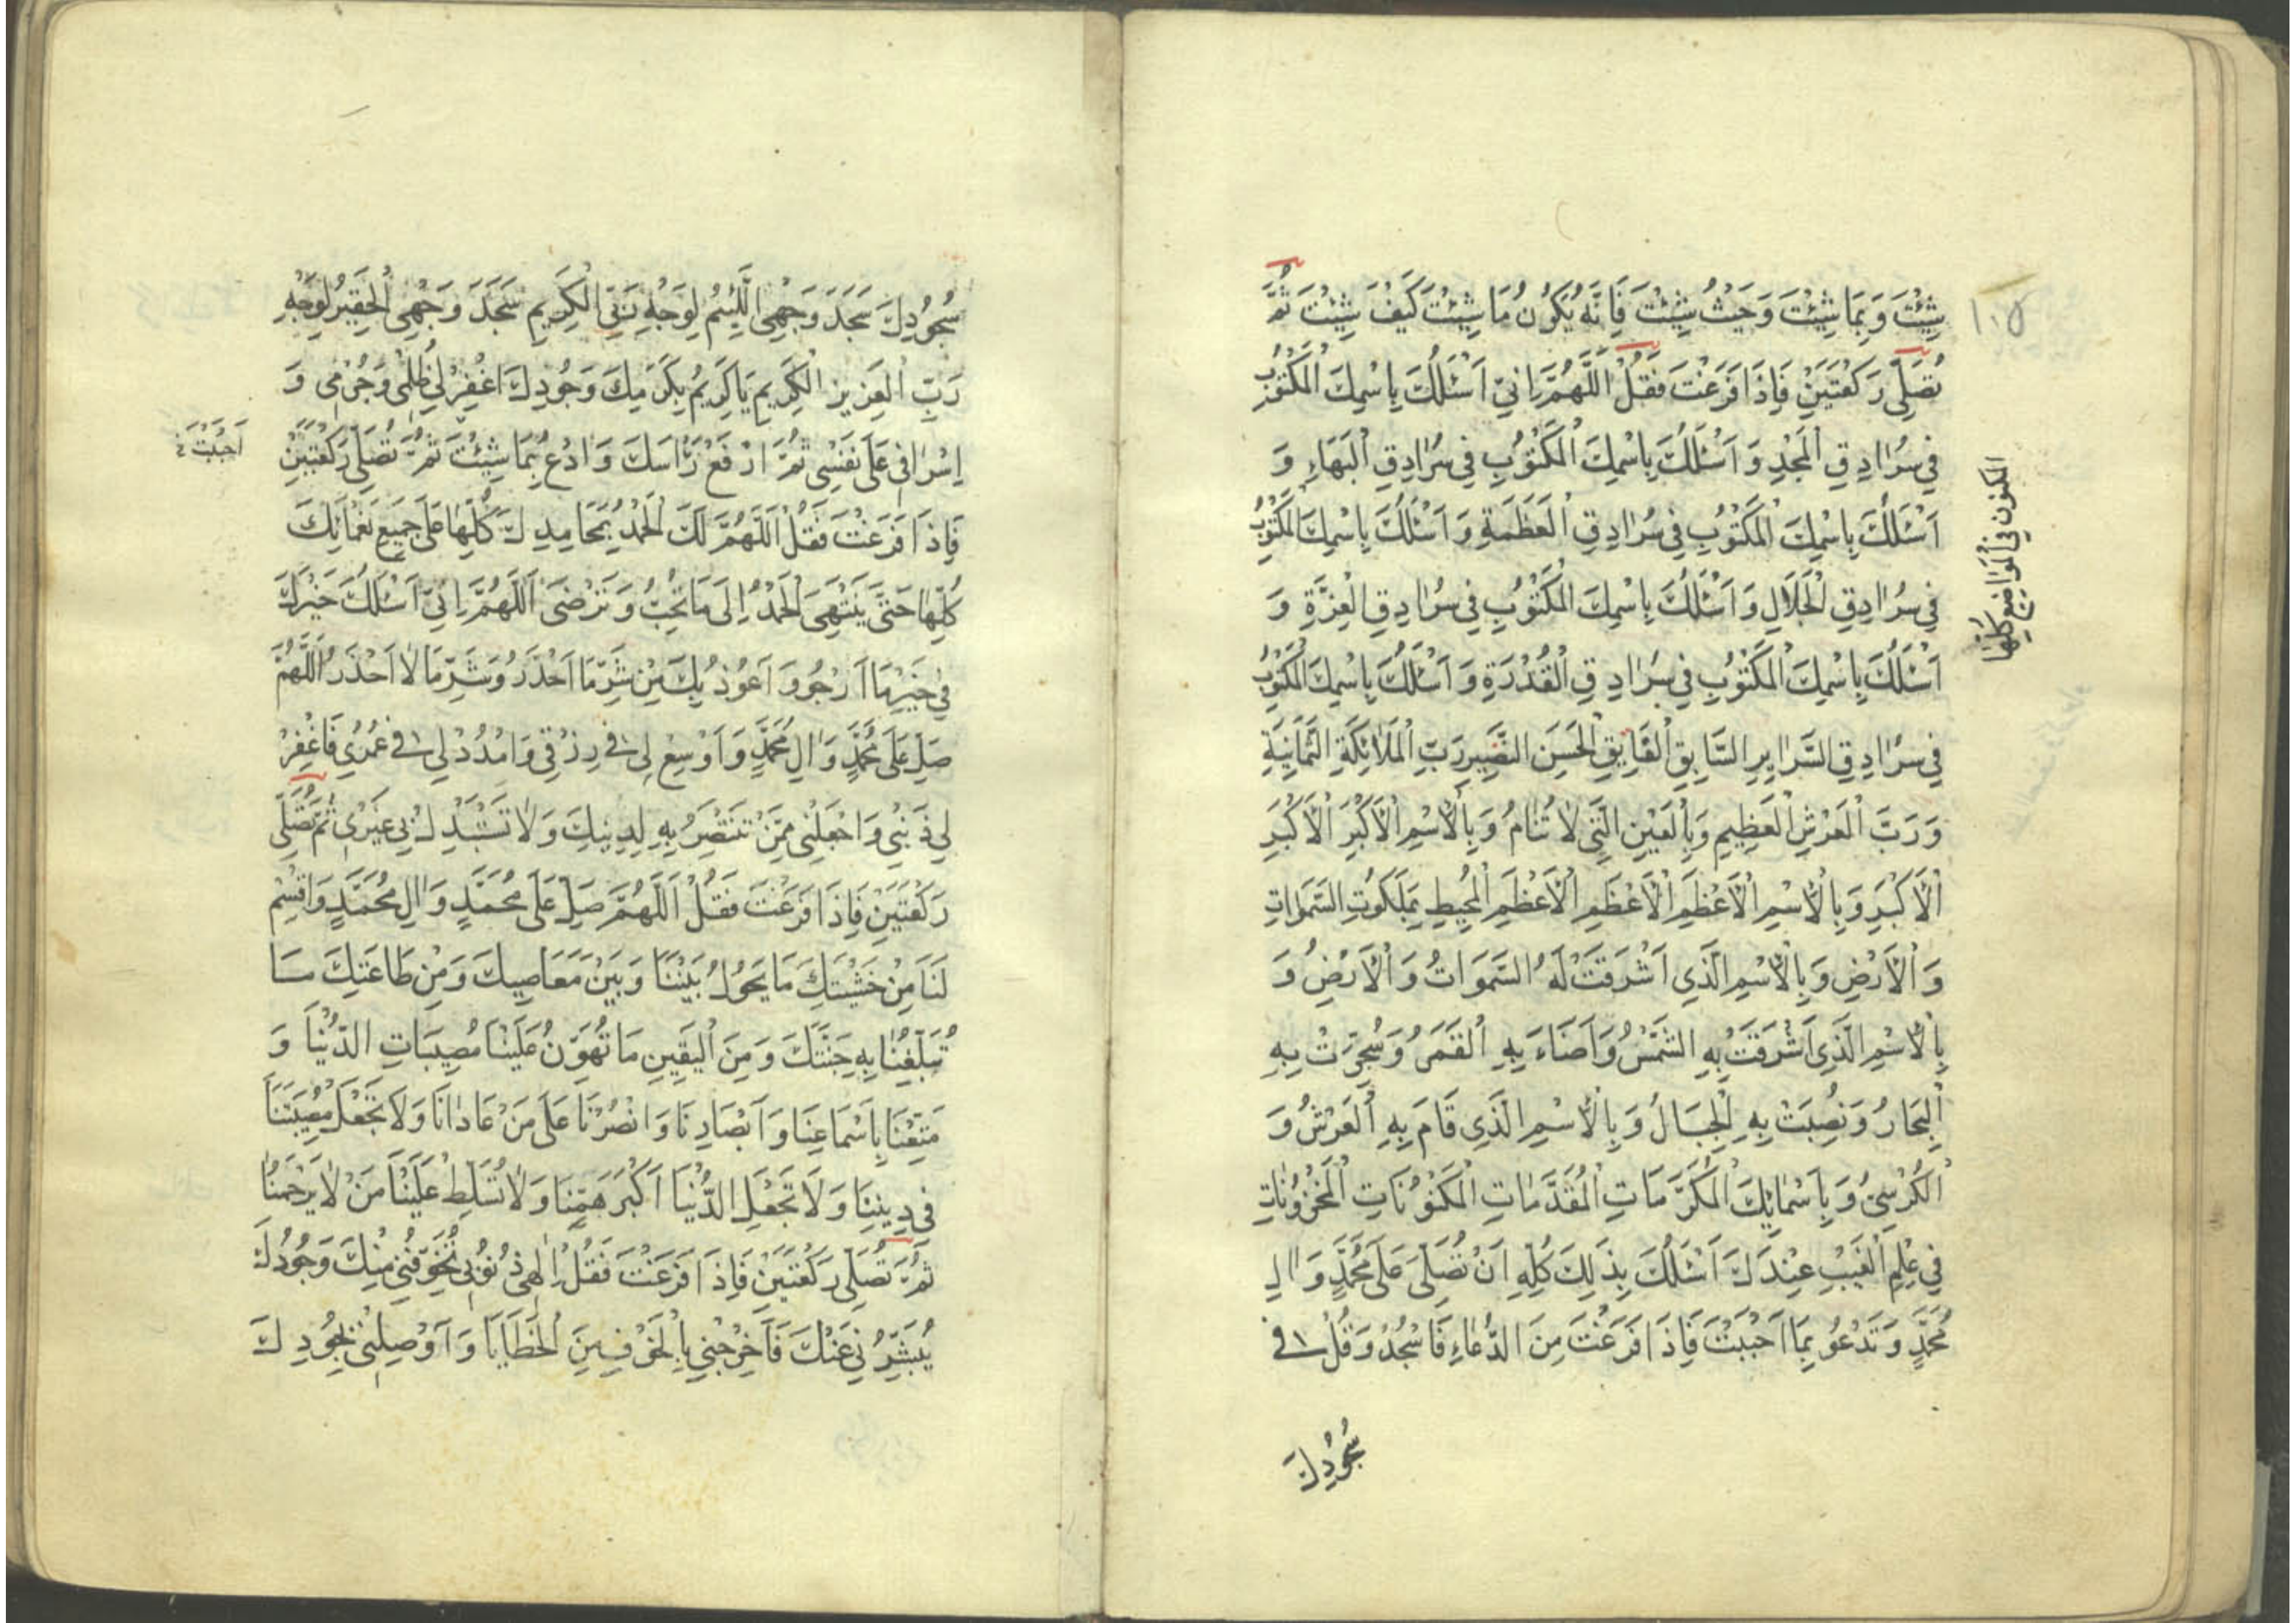 شِئْتَ وَبِمَا شِئْتَ وَحَيْثُ شِئْتَ فَاِنَّهُ يَكُونُ مَا شِئْتَ كَيْفَ شِئْتَ ثُمَّ
١٠٥
تُصَلِّى رَكْعَتَيْنِ فَاِذَا فَرَغْتَ فَقُلْ اَللَّهُمَّ اِنِّى اَسْئَلُكَ بِاسْمِكَ الْمَكْتُوبِ
فِى سُرَادِقِ الْمَجْدِ وَاَسْئَلُكَ بِاسْمِكَ الْمَكْتُوبِ فِى سُرَادِقِ الْبَهَاءِ وَ
اَسْئَلُكَ بِاسْمِكَ الْمَكْتُوبِ فِى سُرَادِقِ الْعَظَمَةِ وَاَسْئَلُكَ بِاسْمِكَ الْمَكْتُوبِ
فِى سُرَادِقِ الْجَلَالِ وَاَسْئَلُكَ بِاسْمِكَ الْمَكْتُوبِ فِى سُرَادِقِ الْعِزَّةِ وَ
اَسْئَلُكَ بِاسْمِكَ الْمَكْتُوبِ فِى سُرَادِقِ الْقُدْرَةِ وَاَسْئَلُكَ بِاسْمِكَ الْمَكْتُوبِ
فِى سُرَادِقِ السَّرَايِرِ السَّابِقِ الْفَايِقِ الْحَسَنِ النَّضِيرِ رَبِّ الْمَلَائِكَةِ الثَّمَانِيَةِ
وَرَبِّ الْعَرْشِ الْعَظِيمِ وَبِالْعَيْنِ الَّتِى لَا تَنَامُ وَبِالْاِسْمِ الْاَكْبَرِ الْاَكْبَرِ
الْاَكْبَرِ وَبِالْاِسْمِ الْاَعْظَمِ الْاَعْظَمِ الْاَعْظَمِ الْمُحِيطِ بِمَلَكُوتِ السَّمَوَاتِ
وَالْاَرْضِ وَبِالْاِسْمِ الَّذِى اَشْرَقَتْ لَهُ السَّمَوَاتُ وَالْاَرْضُ وَ
بِالْاِسْمِ الَّذِى اَشْرَقَتْ بِهِ الشَّمْسُ وَاَضَاءَ بِهِ الْقَمَرُ وَسُجِّرَتْ بِهِ
الْبِحَارُ وَنُصِبَتْ بِهِ الْجِبَالُ وَبِالْاِسْمِ الَّذِى قَامَ بِهِ الْعَرْشُ وَ
الْكُرْسِىُّ وَبِاَسْمَائِكَ الْمُكَرَّمَاتِ الْمُقَدَّمَاتِ الْمَكْنُونَاتِ الْمَخْزُونَاتِ
فِى عِلْمِ الْغَيْبِ عِنْدَكَ اَسْئَلُكَ بِذَلِكَ كُلِّهِ اَنْ تُصَلِّىَ عَلَى مُحَمَّدٍ وَاٰلِ
مُحَمَّدٍ وَتَدْعُو بِمَا اَحْبَبْتَ فَاِذَا فَرَغْتَ مِنَ الدُّعَاءِ فَاسْجُدْ وَقُلْ فِى
سُجُودِكَ
المكنون فى المواضع كلها
سُجُودِكَ سَجَدَ وَجْهِىَ اللَّئِيمُ لِوَجْهِ رَبِّىَ الْكَرِيمِ سَجَدَ وَجْهِىَ الْحَقِيرُ لِوَجْهِ
رَبِّى الْعَزِيزِ الْكَرِيمِ يَا كَرِيمُ بِكَرَمِكَ وَجُودِكَ اغْفِرْ لِى ظُلْمِى وَجُرْمِى وَ
اِسْرَافِى عَلَى نَفْسِى ثُمَّ ارْفَعْ رَأْسَكَ وَادْعُ بِمَا شِئْتَ ثُمَّ تُصَلِّى رَكْعَتَيْنِ
اَحْبَبْتَ
فَاِذَا فَرَغْتَ فَقُلْ اَللَّهُمَّ لَكَ الْحَمْدُ بِمَحَامِدِكَ كُلِّهَا عَلَى جَمِيعِ نَعْمَائِكَ
كُلِّهَا حَتَّى يَنْتَهِىَ الْحَمْدُ اِلَى مَا تُحِبُّ وَتَرْضَى اَللَّهُمَّ اِنِّى اَسْئَلُكَ خَيْرَكَ
فِى خَيْرِ مَا اَرْجُو وَاَعُوذُ بِكَ مِنْ شَرِّ مَا اَحْذَرُ وَشَرِّ مَا لَا اَحْذَرُ اَللَّهُمَّ
صَلِّ عَلَى مُحَمَّدٍ وَاٰلِ مُحَمَّدٍ وَاَوْسِعْ لِى فِى رِزْقِى وَامْدُدْ لِى فِى عُمُرِى فَاغْفِرْ
لِى ذَنْبِى وَاجْعَلْنِى مِمَّنْ تَنْتَصِرُ بِهِ لِدِينِكَ وَلَا تَسْتَبْدِلْ بِى غَيْرِى ثُمَّ تُصَلِّى
رَكْعَتَيْنِ فَاِذَا فَرَغْتَ فَقُلْ اَللَّهُمَّ صَلِّ عَلَى مُحَمَّدٍ وَاٰلِ مُحَمَّدٍ وَاقْسِمْ
لَنَا مِنْ خَشْيَتِكَ مَا يَحُولُ بَيْنَنَا وَبَيْنَ مَعَاصِيكَ وَمِنْ طَاعَتِكَ مَا
تُبَلِّغُنَا بِهِ جَنَّتَكَ وَمِنَ الْيَقِينِ مَا تُهَوِّنُ عَلَيْنَا مُصِيبَاتِ الدُّنْيَا وَ
مَتِّعْنَا بِاَسْمَاعِنَا وَاَبْصَارِنَا وَانْصُرْنَا عَلَى مَنْ عَادَانَا وَلَا تَجْعَلْ مُصِيبَتَنَا
فِى دِينِنَا وَلَا تَجْعَلِ الدُّنْيَا اَكْبَرَ هَمِّنَا وَلَا تُسَلِّطْ عَلَيْنَا مَنْ لَا يَرْحَمُنَا
ثُمَّ تُصَلِّى رَكْعَتَيْنِ فَاِذَا فَرَغْتَ فَقُلْ اِلٰهِى ذُنُوبِى تُخَوِّفُنِى مِنْكَ وَجُودُكَ
يُبَشِّرُنِى عَنْكَ فَاَخْرِجْنِى بِالْخَوْفِ مِنَ الْخَطَايَا وَاَوْصِلْنِى بِجُودِكَ